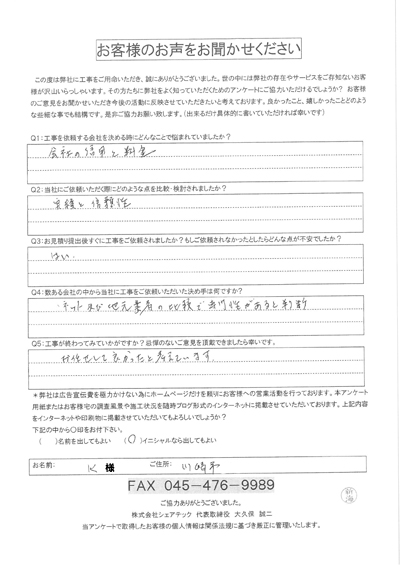 お客様のお声をお聞かせください
この度は弊社に工事をご用命いただき、誠にありがとうございました。世の中には弊社の存在やサービスをご存知ないお客
様が沢山いらっしゃいます。その方たちに弊社をよく知っていただくためのアンケートにご協力いただけるでしょうか？ お客様
のご意見をお聞かせいただき今後の活動に反映させていただきたいと考えております。良かったこと、嬉しかったことどのよう
な些細な事でも結構です。是非ご協力お願い致します。（出来るだけ具体的に書いていただければ幸いです）
Q1：工事を依頼する会社を決める時にどんなことで悩まれていましたか？
会社の信用と料金
Q2：当社にご依頼いただく際にどのような点を比較・検討されましたか？
実績と信頼性
Q3：お見積り提出後すぐに工事をご依頼されましたか？もしご依頼されなかったとしたらどんな点が不安でしたか？
はい
Q4：数ある会社の中から当社に工事をご依頼いただいた決め手は何ですか？
ネット及び地元業者の比較で専門性があると判断
Q5：工事が終わってみていかがですか？忌憚のないご意見を頂戴できましたら幸いです。
お任せして良かったと考えています。
＊弊社は広告宣伝費を極力かけない為にホームページだけを頼りにお客様への営業活動を行っております。本アンケート
用紙またはお客様宅の調査風景や施工状況を随時ブログ形式のインターネットに掲載させていただいております。上記内容
をインターネットや印刷物に掲載させていただいてもよろしいでしょうか？
下記の中から〇印をお付下さい。
（ ）名前を出してもよい （〇）イニシャルなら出してもよい
お名前： K 様 ご住所： 川崎市
FAX 045－476－9989
ご協力ありがとうございました。
株式会社シェアテック 代表取締役 大久保 誠二
当アンケートで取得したお客様の個人情報は関係法規に基づき厳正に管理いたします。